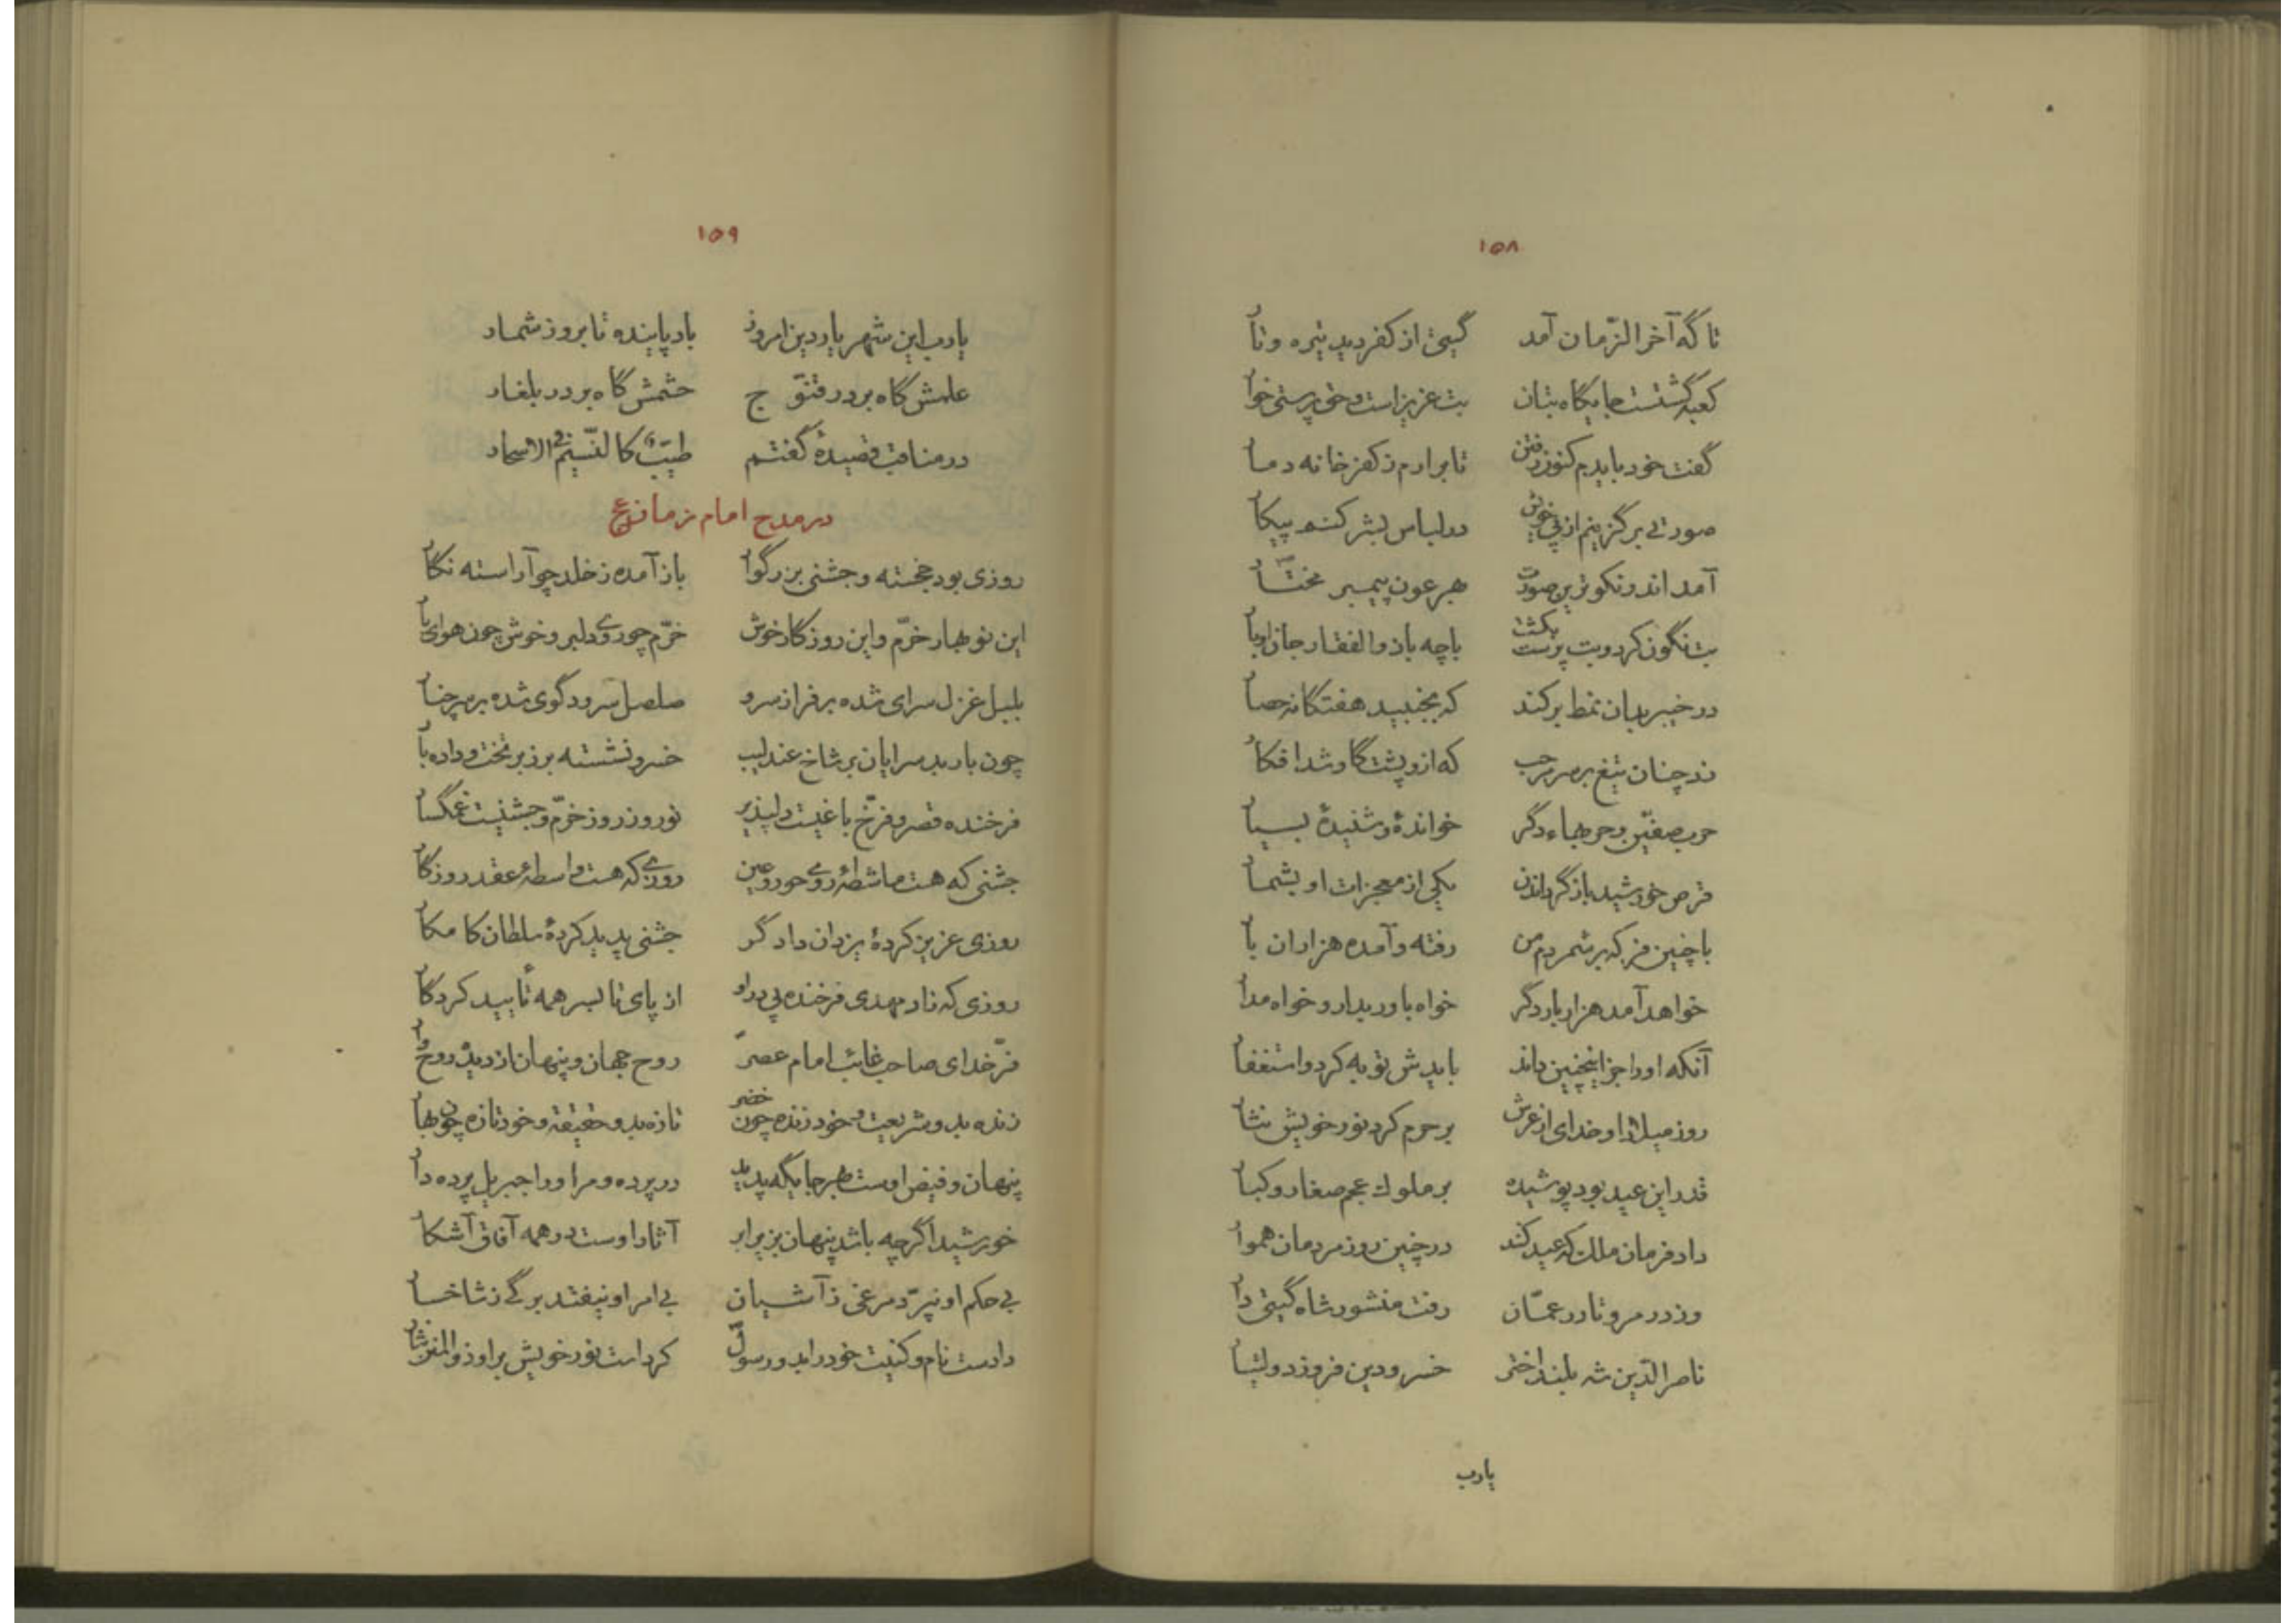 ۱۵۸
تا گه آخر الزّمان آمد گیتی از کفر دید تیره و تار
کعبه گشتست جایگاه بتان بت عزیز است و حق پرستی خوار
گفت خود بایدم کنون رفتن تا برارم ز کفر خانه دمار
صورتی برگزینم از پی خویش در لباس بشر کنم پیکار
آمد اندر نکوترین صورت بهر عون پیمبر مختار
بت نگون کرد و بت پرست بکشت با چه با ذوالفقار جان اوبار
در خیبر بدان نمط برکند که بجنبید هفتگانه حصار
زد چنان تیغ بر سر مرحب که ازو پشت گاو شد افکار
حرب صفّین و حربهاء دگر خواندهٔ و شنیدهٔ بسیار
قرص خورشید باز گرداندن یکی از معجزات او بشمار
با چنین فر که بر شمردم من رفته و آمده هزاران بار
خواهد آمد هزار بار دگر خواه باور بدار و خواه مدار
آنکه او را جز اینچنین داند بایدش توبه کرد و استغفار
روز میلاد او خدای از عرش بر حرم کرد نور خویش نثار
قدر این عید بود پوشیده بر ملوک عجم صغار و کبار
داد فرمان ملک که عید کند در چنین روز مردمان هموار
وز در مرو تا در عمّان رفت منشور شاه گیتی دار
ناصر الدّین شه بلند اختر خسرو دین فروز دولتیار
یارب
۱۵۹
یارب این شهریار دین امروز باد پاینده تا بروز شمار
علمش گاه بر در قنّوج حشمش گاه بر در بلغار
در مناقب قصیدهٔ گفتم طیّب کالنّسیم فی الاسحار
در مدح امام زمان ع
روزی بود خجسته و جشنی بزرگوار باز آمده ز خلد چو آراسته نگار
این نوبهار خرّم و این روزگار خوش خرّم چو روی دلبر و خوش چون هوای یار
بلبل غزل سرای شده بر فراز سرو صلصل سرود گوی شده بر سر چنار
چون باربد سرایان بر شاخ عندلیب خسرو نشسته بر زبر تخت و داده بار
فرخنده قصر و فرّخ باغیست دلپذیر نوروز روز خرّم و جشنیست غمگسار
جشنی که هست ماشطهٔ روی حور عین روزی که هست واسطهٔ عقد روزگار
روزی عزیز کردهٔ یزدان دادگر جشنی پدید کردهٔ سلطان کامکار
روزی که زاد مهدی فرخنده پی در او از پای تا بسر همه تأیید کردگار
فرّ خدای صاحب غائب امام عصر روح جهان و پنهان از دیده روح وار
زنده بدو شریعت و خود زنده چون خضر تازه بدو حقیقت و خود تازه چون بهار
پنهان و فیض اوست بهر جایگه پدید در پرده و مر او را جبریل پرده دار
خورشید اگرچه باشد پنهان بزیر ابر آثار اوست در همه آفاق آشکار
بی حکم او نپرّد مرغی ز آشیان بی امر او نیفتد برگی ز شاخسار
دادست نام و کنیت خود را بدو رسول کردست نور خویش بر او ذوالمنن نثار